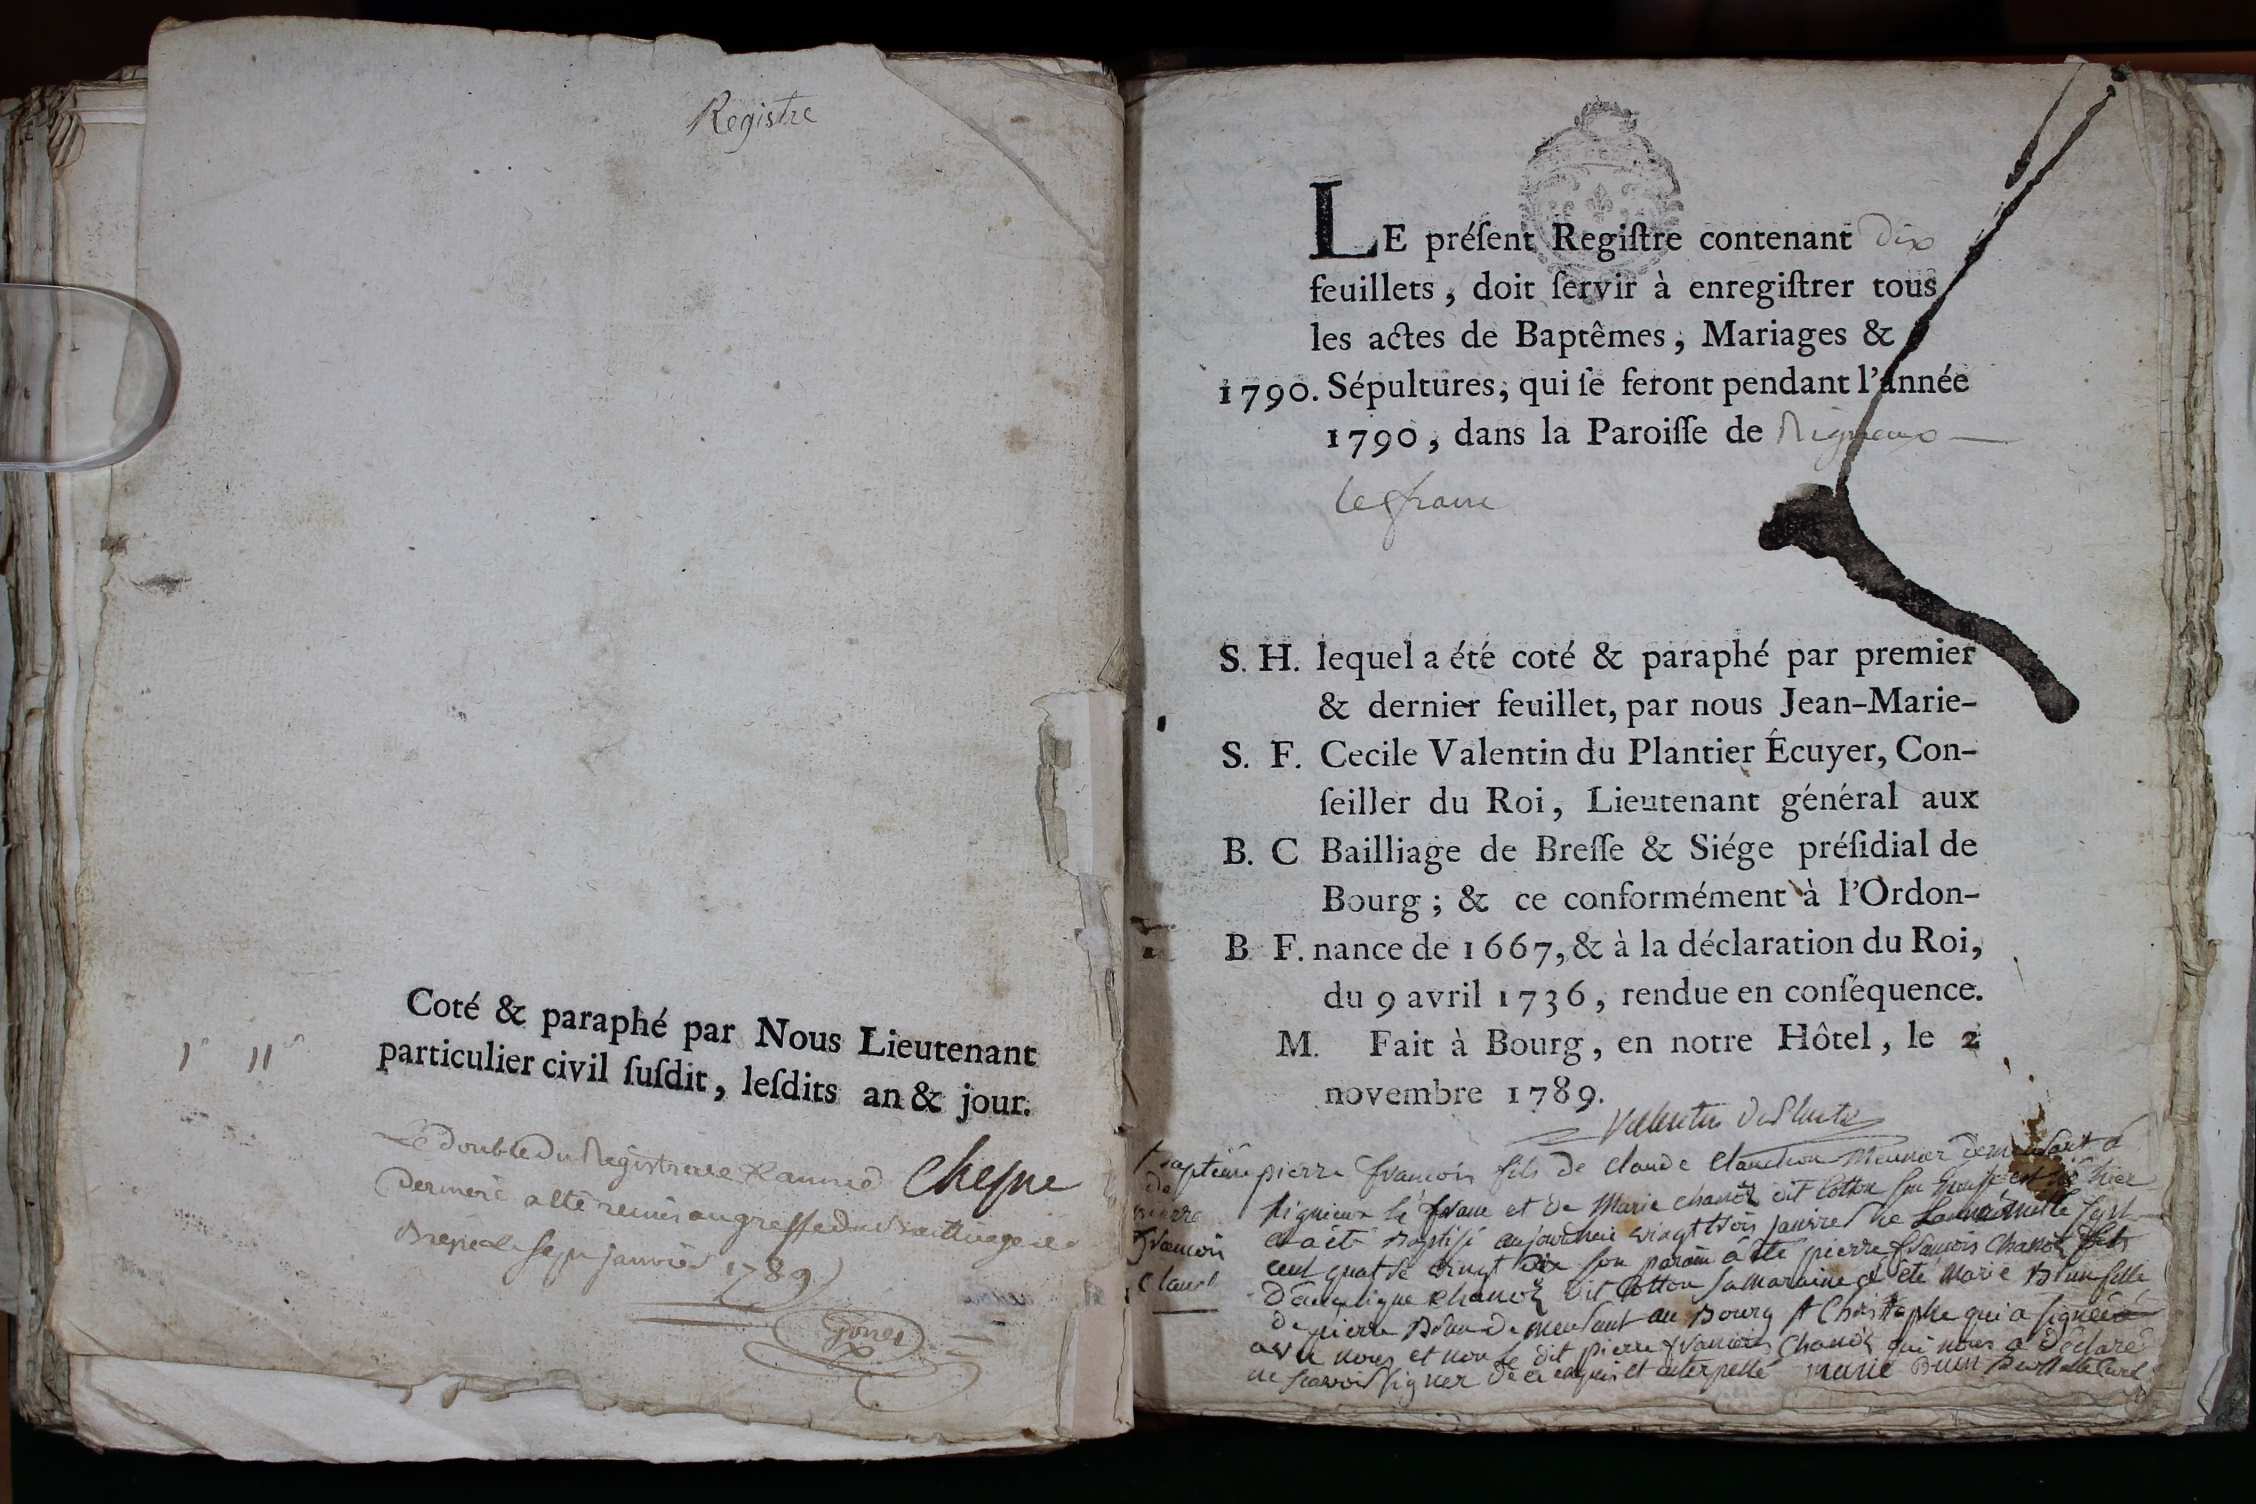 Registre
Coté & paraphé par Nous Lieutenant
particulier civil ſuſdit, leſdits an & jour.
1r 11r
Le double du Registre de l'année
Cheſne
derniere a été remis au greffe du Bailliage de
janvier 1789
LE préſent Regiſtre contenant dix
feuillets, doit ſervir à enregiſtrer tous
les actes de Baptêmes, Mariages &
1790. Sépultures, qui ſe feront pendant l'année
1790, dans la Paroiſſe de Rigneux
le franc
S. H. lequel a été coté & paraphé par premier
& dernier feuillet, par nous Jean-Marie-
S. F. Cecile Valentin du Plantier Écuyer, Con-
ſeiller du Roi, Lieutenant général aux
B. C Bailliage de Breſſe & Siége préſidial de
Bourg ; & ce conformément à l'Ordon-
B F. nance de 1667, & à la déclaration du Roi,
du 9 avril 1736, rendue en conſéquence.
M. Fait à Bourg, en notre Hôtel, le 2
novembre 1789.
Valentin Du Plantier
Baptême
de
pierre
françois
pierre françois fils de claude Meunier demeurant à
Rigneux le franc et de Marie chanel dit Cotton son Epouse est né hier
et a été Baptisé aujourdhui vingt trois janvier mille sept
cent quatre vingt dix son parain a été pierre françois chanel fils
chanel dit Cotton sa maraine a été Marie Brun fille
de pierre Brun demeurant au Bourg St Christophe qui a signée
avec nous et non le dit pierre françois chanel qui nous a déclaré
ne sçavoir signer de ce enquis et interpellé marie Brun